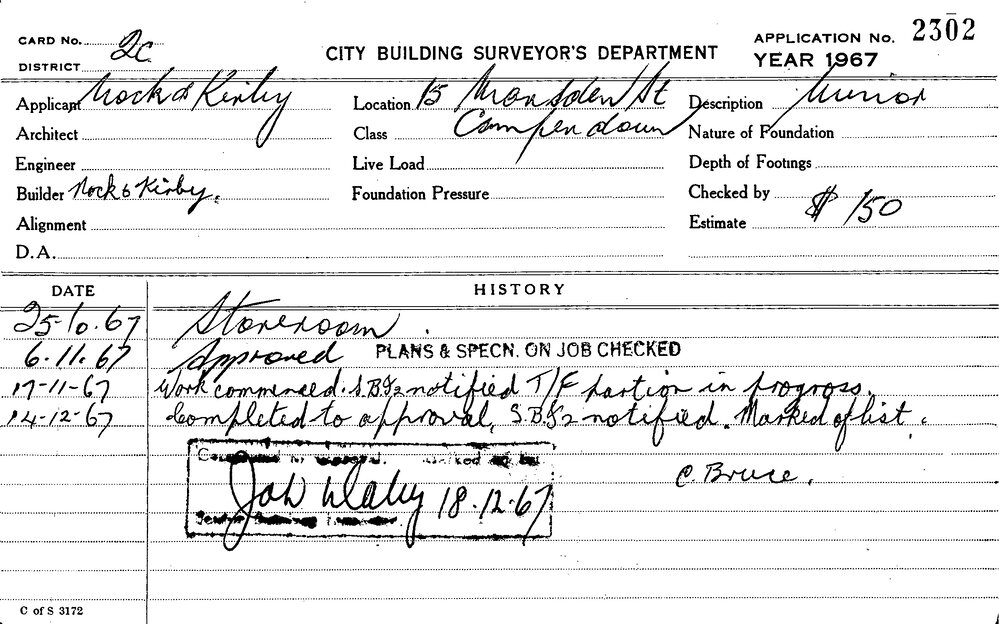 CARD No. 2c
DISTRICT
CITY BUILDING SURVEYOR'S DEPARTMENT
APPLICATION No. 2302
YEAR 1967
Applicant Nock & Kirby
Location 15 Marsden St
Camperdown
Description Minor
Architect
Class
Nature of Foundation
Engineer
Live Load
Depth of Footings
Builder Nock & Kirby.
Foundation Pressure
Checked by
Alignment
Estimate $150
D.A.
DATE
HISTORY
25-10.67 Storeroom
6.11.67 Approved PLANS & SPECN. ON JOB CHECKED
17-11-67 Work commenced. S.B.I2 notified T/F partion in progross.
14-12-67 Completed to approval, S.B.I2 notified. Marked of list.
C. Bruce.
18.12.67
C of S 3172